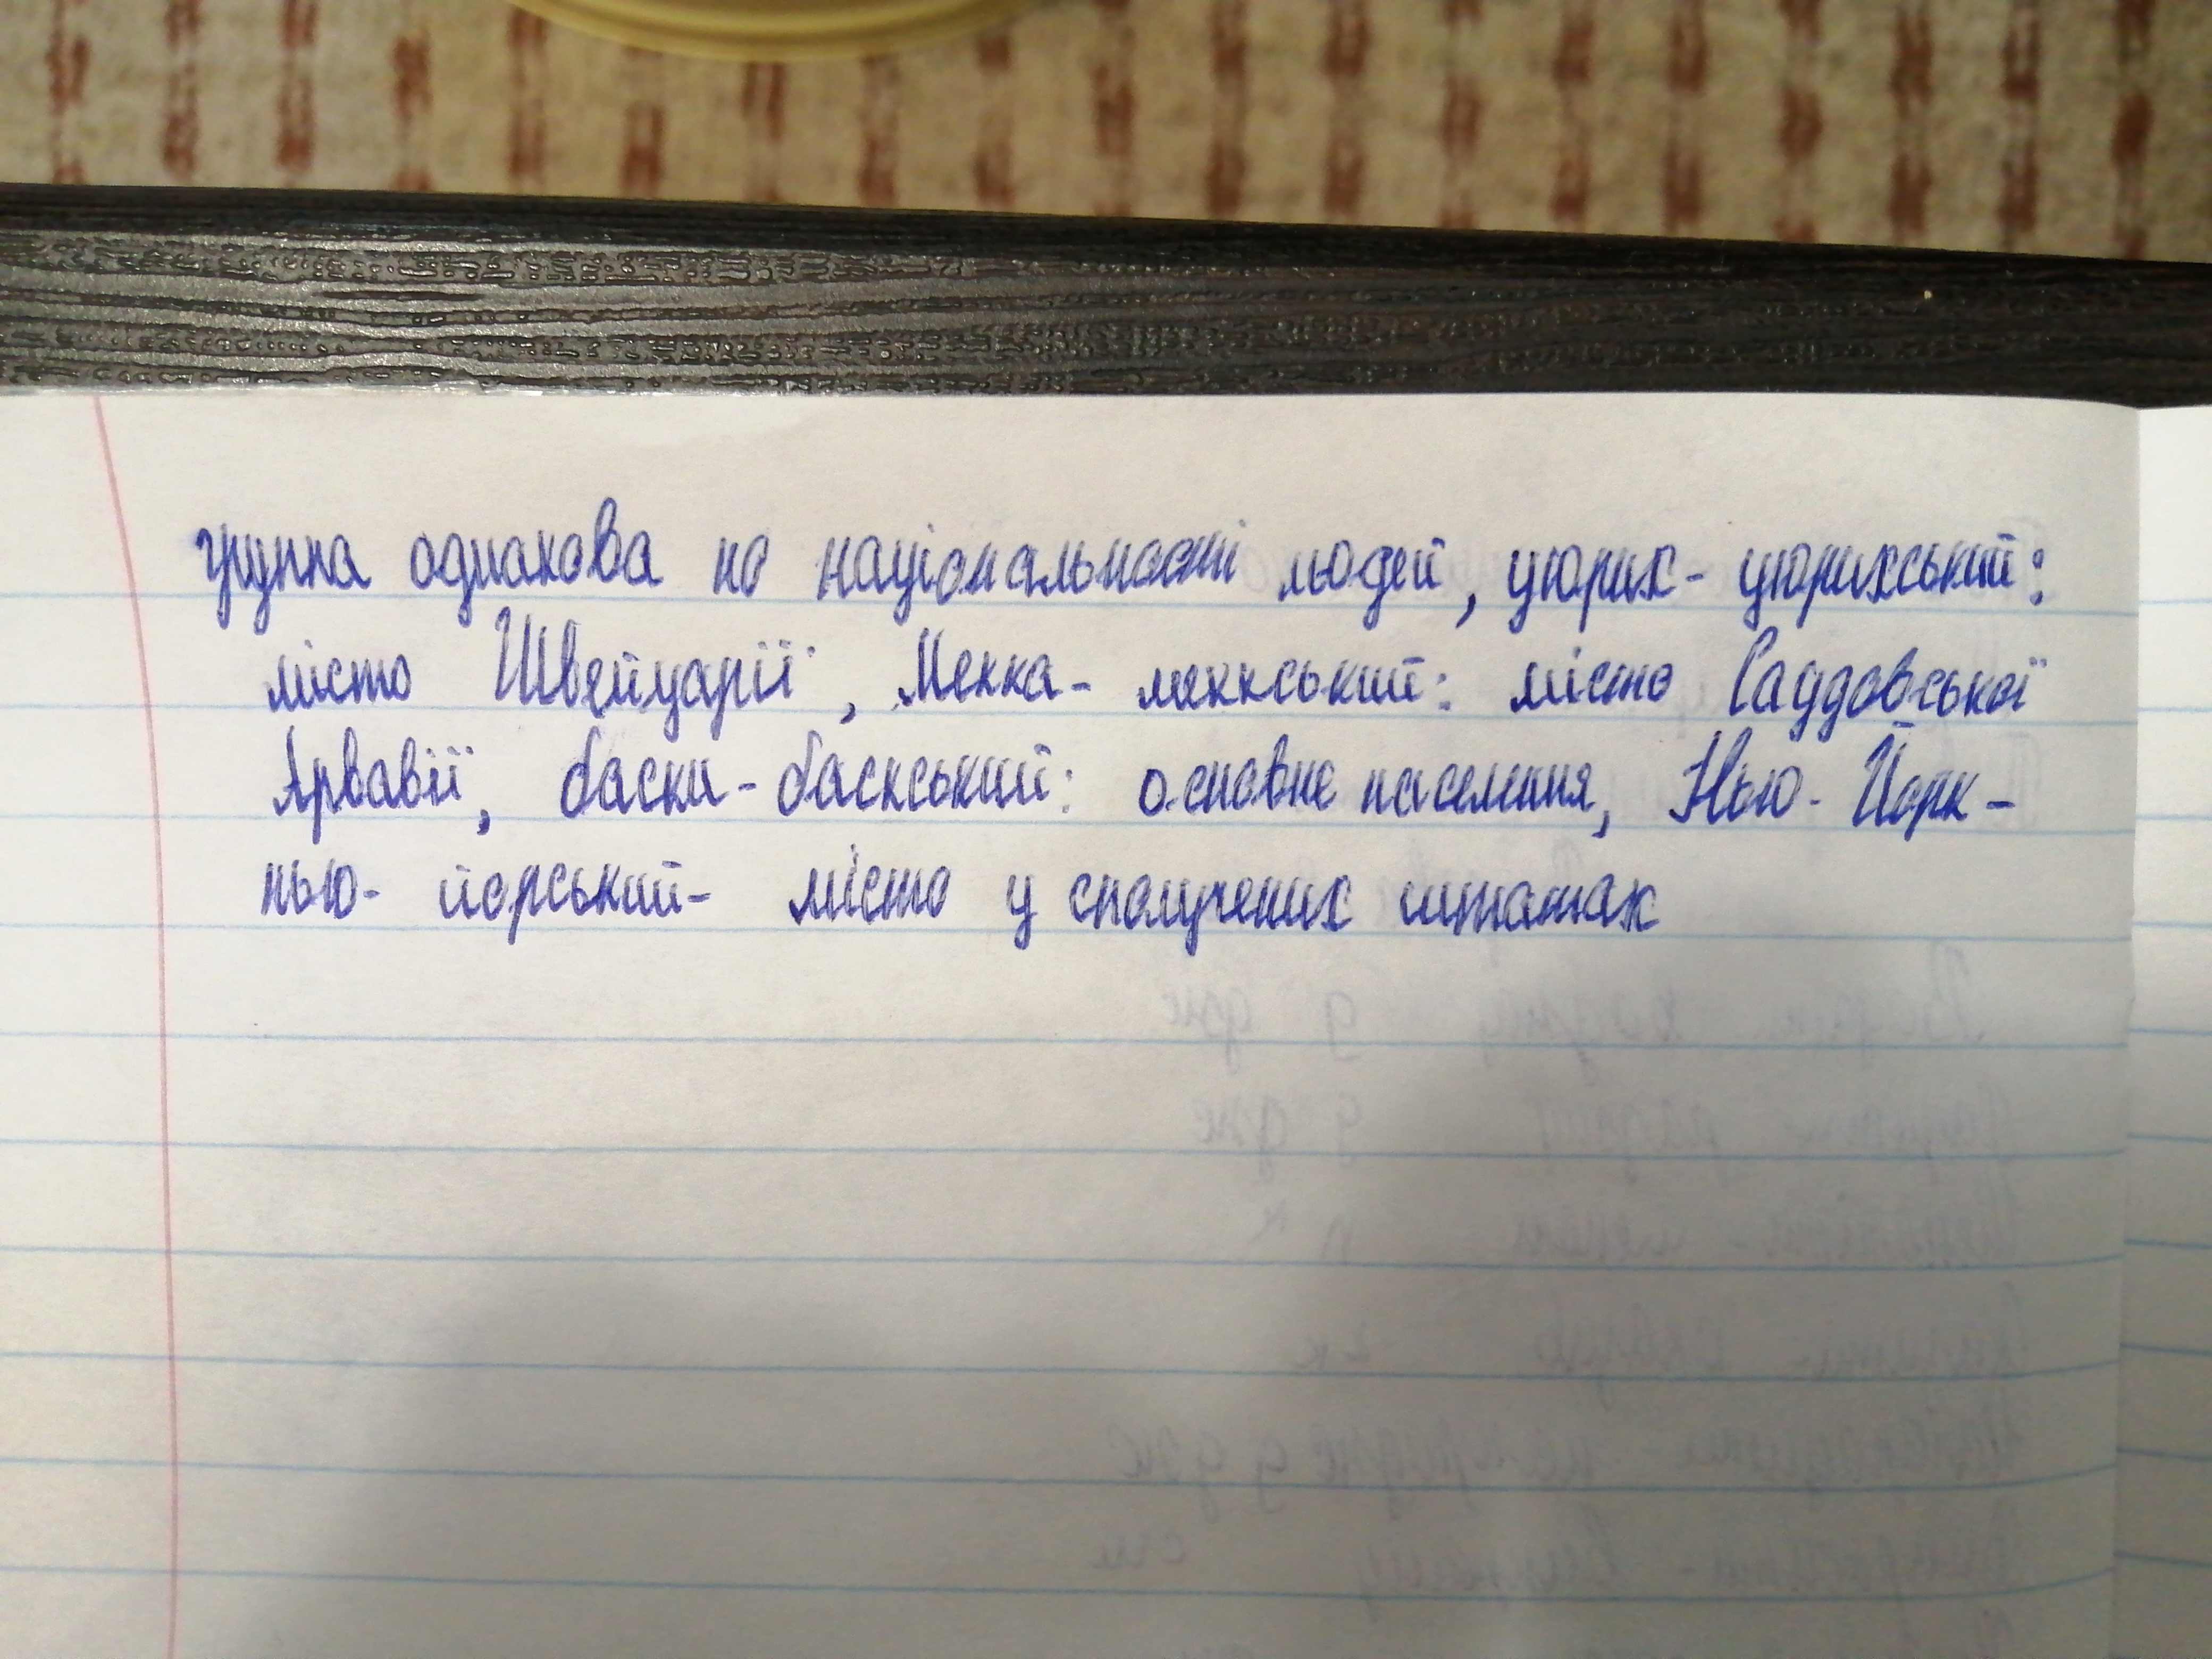 группа однакова по національності людей, цюрих- цюрихський:
місто Швейцарії, Мекка- меккський: місто Саудовської
Арвавії, баски-баскський: основне населення, Нью-Йорк-
нью- йорський- місто у сполучених штатах